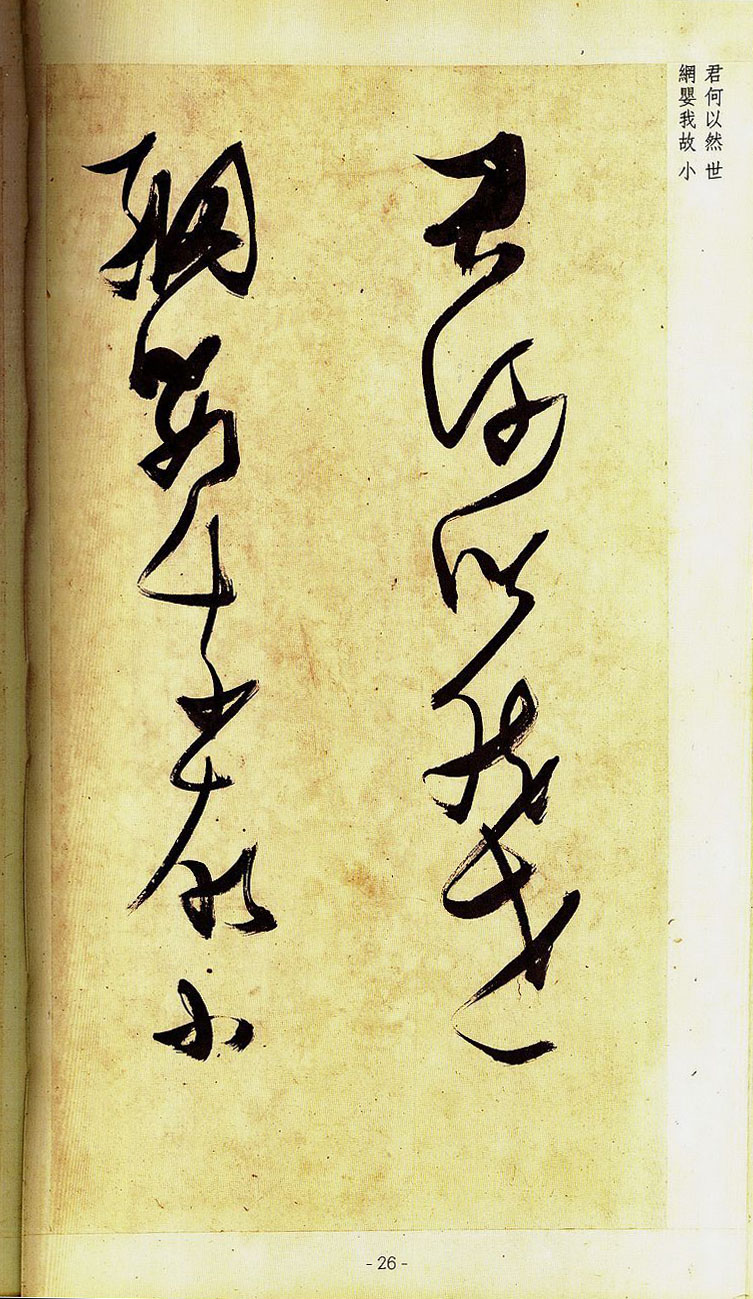 君何以然世
網嬰我故小
君何以然世
網嬰我故小
- 26 -